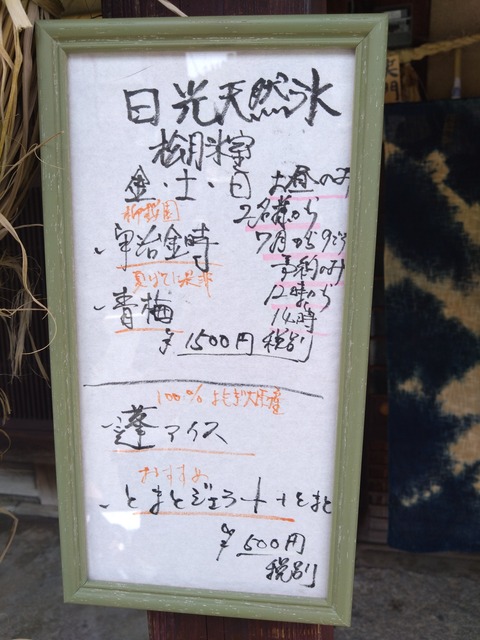 日光天然氷
松月氷室
金・土・日
お昼のみ
2名様から
7月から9どう
予約のみ
12時から
14時
柳桜園
、宇治金時
夏ばてに是非
、青梅
¥1500円 税別
100%よもぎ大原産
、蓬アイス
おすすめ
、とまとジェラート+とまと
¥500円
税別